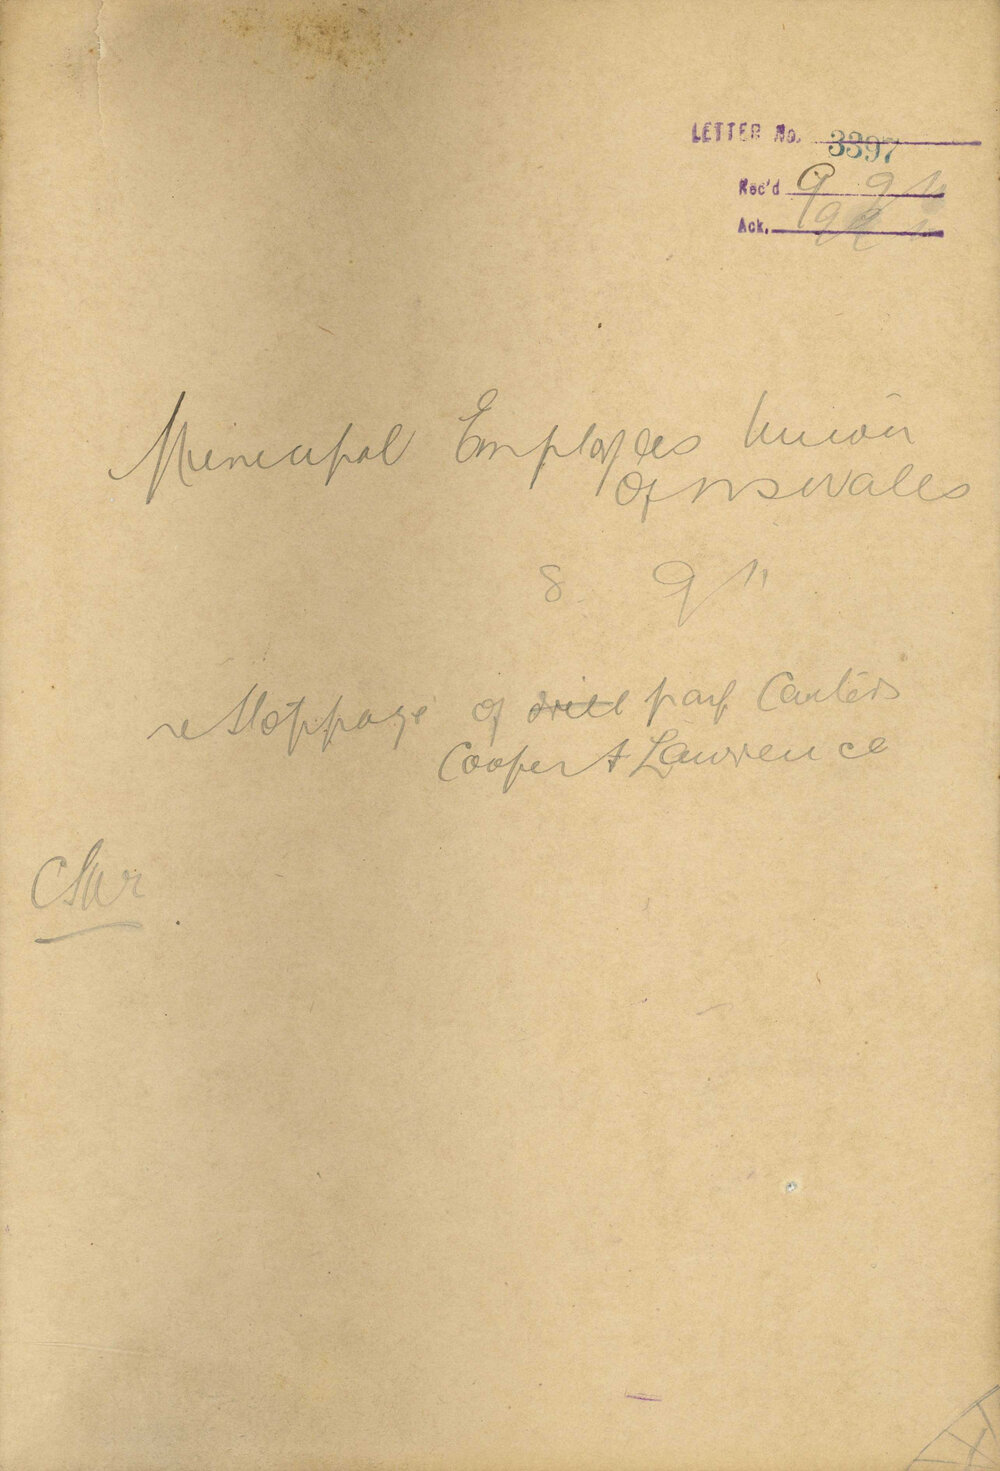 LETTER No. 3397
Rec'd 9 9 11
Ack. 9 9 11
Municipal Employees Union
of NS Wales
8 9 11
re Stoppage of drill pay Carters
Cooper & Lawrence